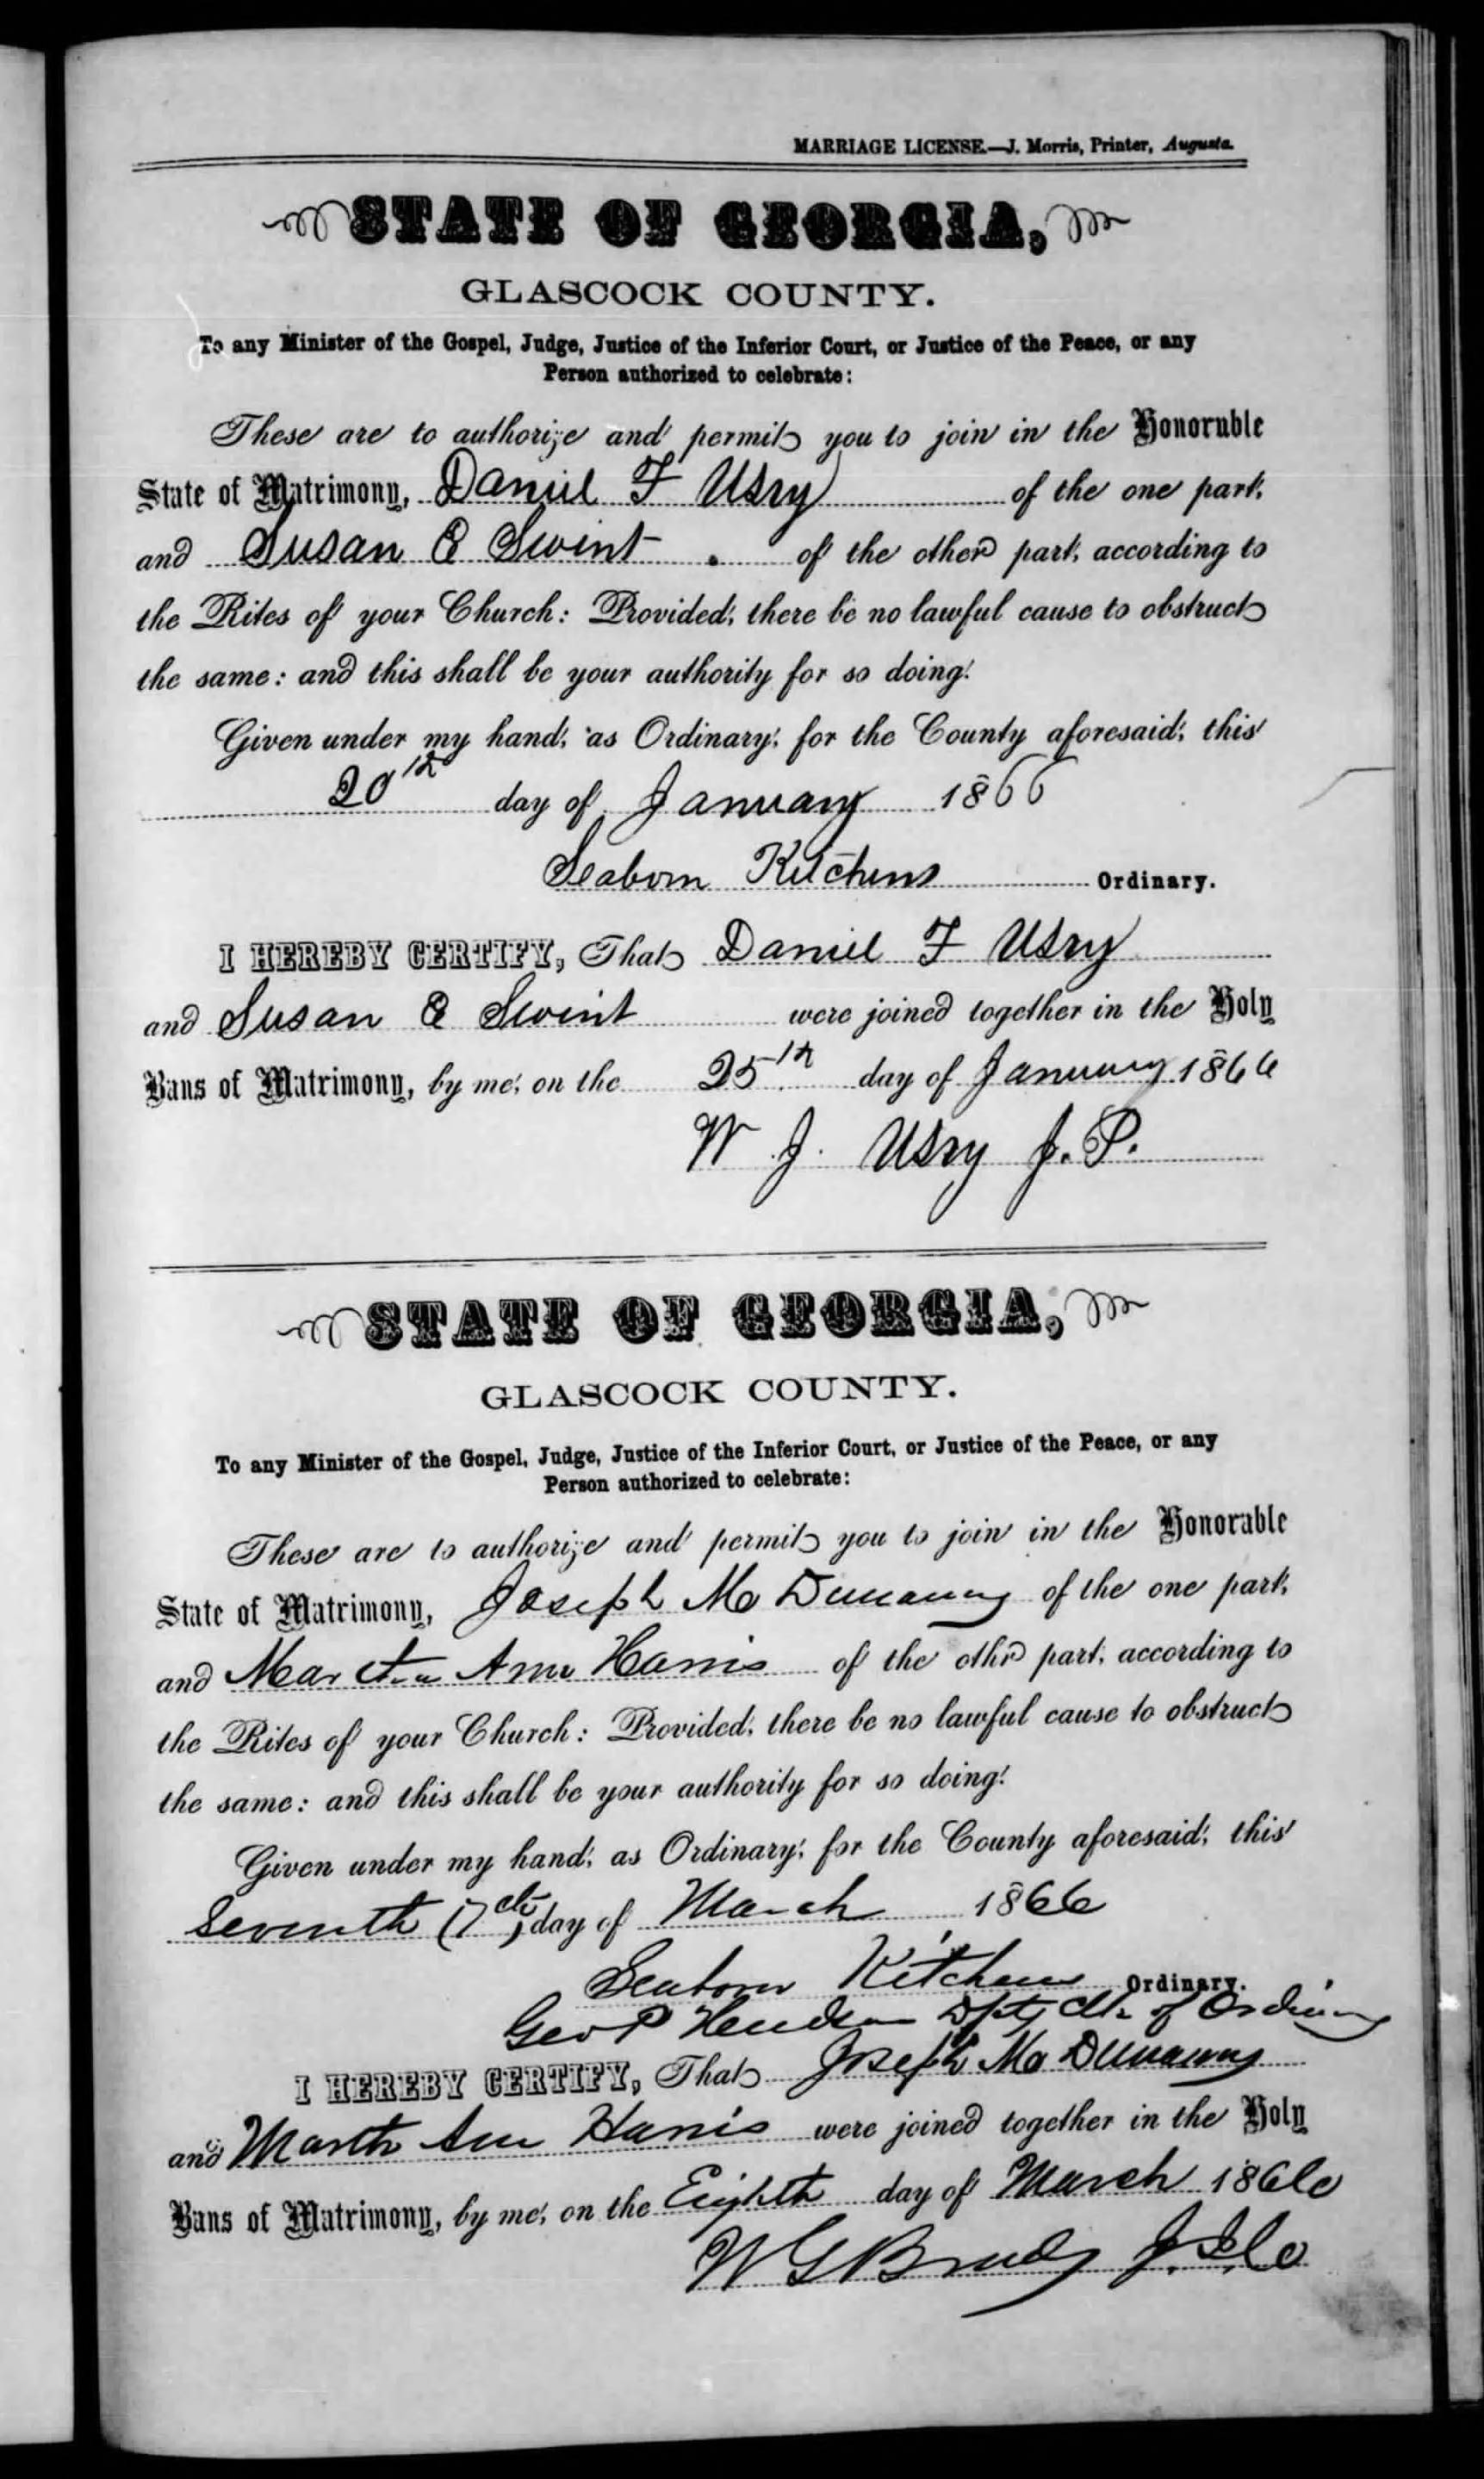 MARRIAGE LICENSE.—J. Morris, Printer, Augusta.
STATE OF GEORGIA,
GLASCOCK COUNTY.
To any Minister of the Gospel, Judge, Justice of the Inferior Court, or Justice of the Peace, or any
Person authorized to celebrate:
These are to authorize and permit you to join in the Honorable
State of Matrimony, Daniel F Usry of the one part,
and Susan E Swint . of the other part, according to
the Rites of your Church: Provided, there be no lawful cause to obstruct
the same: and this shall be your authority for so doing.
Given under my hand, as Ordinary, for the County aforesaid, this
20th day of January 1866
Seaborn Kitchens Ordinary.
I HEREBY CERTIFY, That Daniel F Usry
and Susan E Swint were joined together in the Holy
Bans of Matrimony, by me, on the 25th day of January 1866
W J. Usry J. P.
STATE OF GEORGIA,
GLASCOCK COUNTY.
To any Minister of the Gospel, Judge, Justice of the Inferior Court, or Justice of the Peace, or any
Person authorized to celebrate:
These are to authorize and permit you to join in the Honorable
State of Matrimony, Joseph M Dunaway of the one part,
and Martha Ann Harris of the othr part, according to
the Rites of your Church: Provided, there be no lawful cause to obstruct
the same: and this shall be your authority for so doing.
Given under my hand, as Ordinary, for the County aforesaid, this
Seventh (7th) day of March 1866
Seaborn Kitchens Ordinary.
Geo P Dpty Clk of Ordinary
I HEREBY CERTIFY, That Joseph M Dunaway
and Martha Ann Harris were joined together in the Holy
Bans of Matrimony, by me, on the Eighth day of March 1866
W G Brady J. I. C